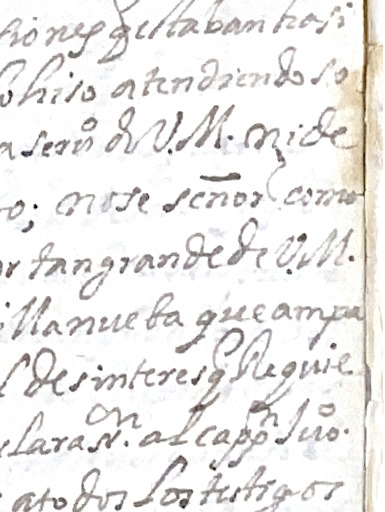 siones q̃ estaban hasi
lo hiso atendiendo so
a serv.º de V.M. ni de
to; no se señor como
or tan grande de V.M.
illanueba que ampa
l desinteres q̃ le guie
clarass.on al capp.n Ju.º
a todos los testigos